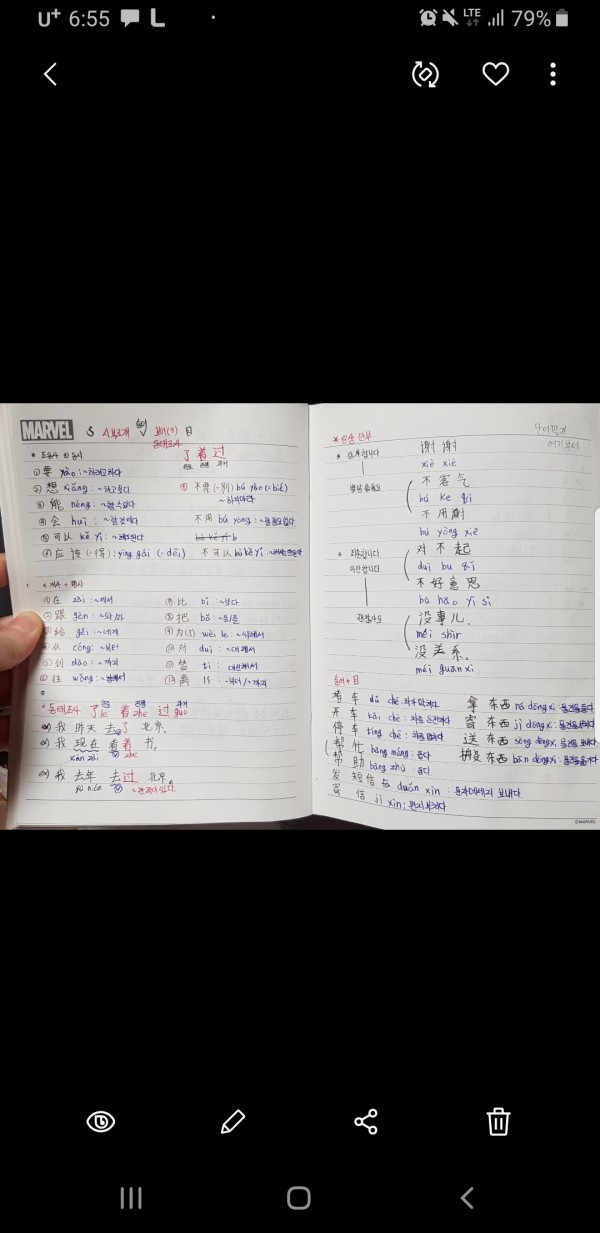 U+ 6:55 LTE 79%
MARVEL
S 시보조개 술어 보어(의) 目
동태조사
* 조동사 + 동사
了 着 过
완료 진행 과거
① 要 yào : ~하려고하다
② 想 xiǎng : ~하고싶다
不要 (=别) bú yào (=bié)
~하지마라
③ 能 néng : ~할수있다
④ 会 huì : ~할것이다
不用 bú yòng : ~할필요없다
⑤ 可以 kě yǐ : ~해도된다
⑥ 应该 (=得) : yīng gāi (=děi)
不可以 bù kě yǐ : ~해서는안된다
* 개사 + 명사
① 在 zài : ~에서
② 跟 gēn : ~와/과
③ 给 gěi : ~에게
④ 从 cóng : ~부터
⑤ 到 dào : ~까지
⑥ 往 wǎng :
⑦ 比 bǐ : ~보다
⑧ 把 bǎ : ~을/를
⑨ 为(了) wèi le : ~위해서
⑩ 对 duì : ~대해서
⑪ 替 tì : 대신해서
⑫ 离 lí : ~부터/~까지
* 동태조사 了 le 着 zhe 过 guo
완료 진행 과거
예) 我 昨天 去了 北京。
예) 我 现在 看着 书。
xiàn zài zhe
예) 我 去年 去过 北京。
qù nián ~한적이있다.
단어필기
여기부터
* 문장 단부
* 감사합니다
谢谢
xiè xiè
별말씀을요
不客气
bú kè qi
不用謝
bú yòng xiè
* 죄송합니다
미안합니다
对不起
duì bu qǐ
不好意思
bù hǎo yì si
괜찮아요
没事儿。
méi shìr
没关系。
méi guān xi
술어+目
堵车 dǔ chē : 차가막히다
开车 kāi chē : 차를운전하다
停车 tíng chē : 차를멈추다
帮忙 bāng máng : 돕다
帮助 bāng zhù : 돕다
发短信 fā duǎn xìn : 문자메세지 보내다
寄信 jì xìn : 편지부치다
拿东西 ná dōng xi : 물건을들다
寄东西 jì dōng xi : 물건을부치다
送东西 sòng dōng xi : 물건을 보내다
搬东西 bān dōng xi : 물건을옮기다
©MARVEL